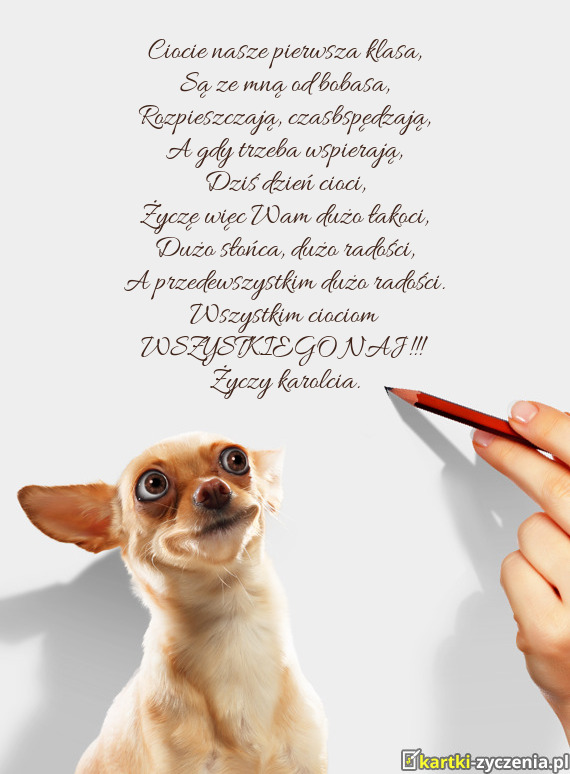 Ciocie nasze pierwsza klasa,
Są ze mną od bobasa,
Rozpieszczają, czasbspędzają,
A gdy trzeba wspierają,
Dziś dzień cioci,
Życzę więc Wam dużo łakoci,
Dużo słońca, dużo radości,
A przedewszystkim dużo radości.
Wszystkim ciociom
WSZYSTKIEGO NAJ!!!
Życzy karolcia.
kartki-zyczenia.pl